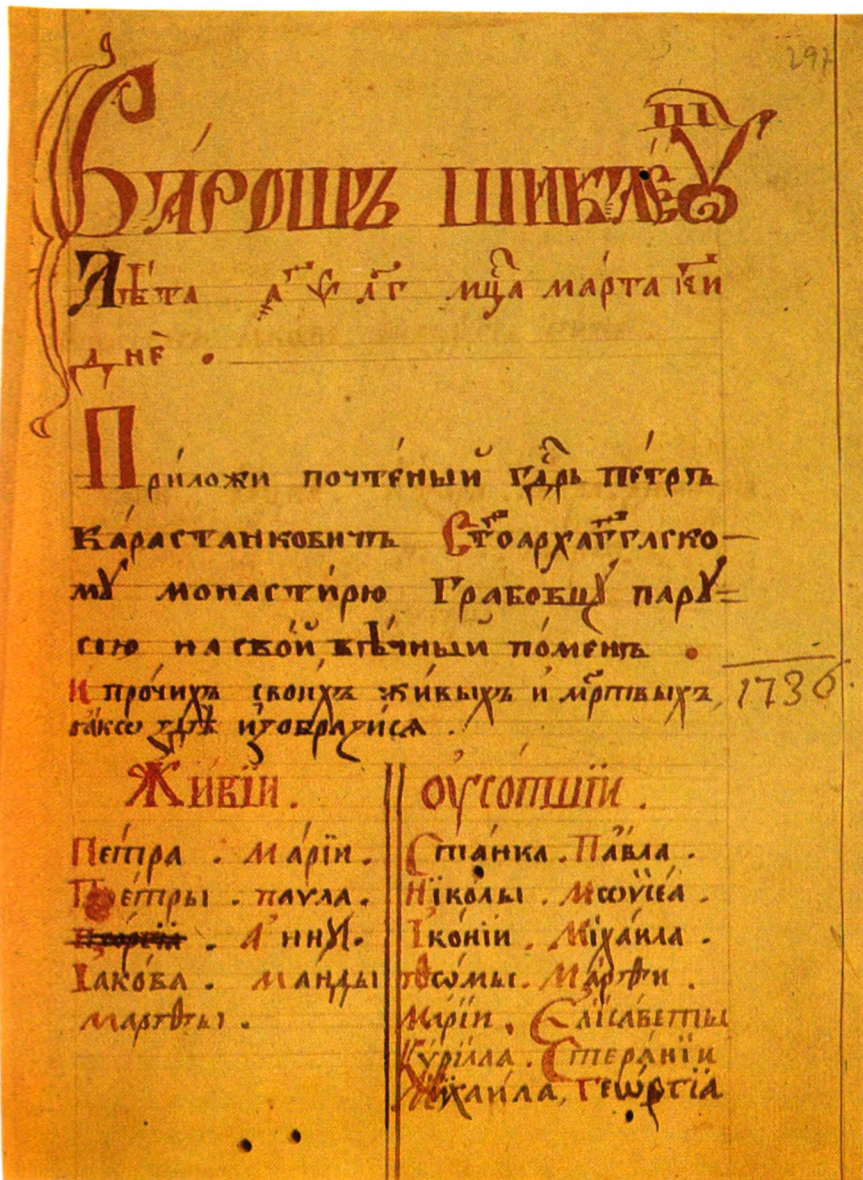 297
Варошъ Шиклѣушъ
Лѣта аѱлг мц҃а марта ки
днє .
Прило́жи почте́ный гдⷭ҇рь пе́тръ
Ка́растанковичъ Ст҃оарха́гг҃лско-
мꙋ монасти́рю Грабовцꙋ парꙋ=
сїю на сво́й вѣ́чный по́менъ .
и про́чихъ свои́хъ жи́выхъ и мр҃твыхъ,
ꙗ́кѡ здѣ̀ изобрази́сѧ .
1736.
Жи́вїи .
Пе́тра . Ма́рїи .
Пе́тры . паѵла .
А́ннꙋ .
Іако́ва . манды
марѳы .
оу҆со́пшїи .
Ста́нка . Па́ѵла .
Нїко́лы . Мѡѷсеа .
Іко́нїи . Мїха́ила .
Ѳѡмы́ . Ма́рѳи .
Ма́рїи . Єлїсаветы
Кѷрі́лла . Стефа́нїи
Мїха́ила, геѡ́ргїа